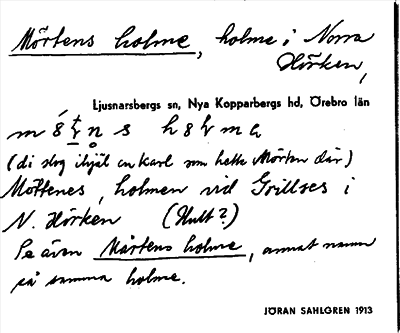 Mörtens holme, holme i Norra
Hörken,
Ljusnarsbergs sn, Nya Kopparbergs hd, Örebro län
(di slog ihjäl en karl som hette Mörten där)
Möttenes, holmen vid Grillses i
N. Hörken (Hult?)
Se även Mårtens holme, annat namn
på samma holme.
JÖRAN SAHLGREN 1913